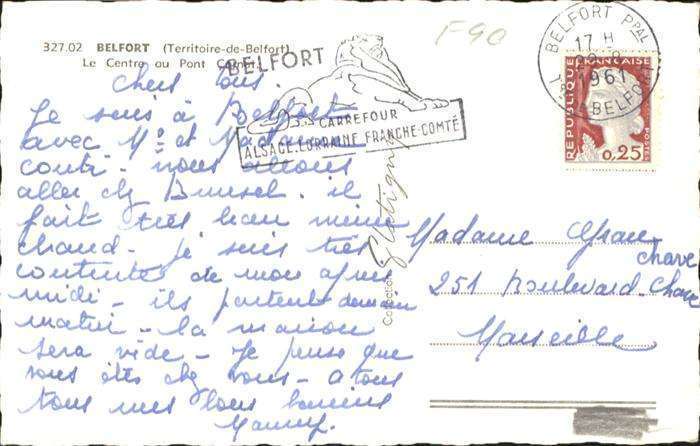 327.02 BELFORT (Territoire-de-Belfort)
Le Centre au Pont Carnot
F90
BELFORT
CARREFOUR
ALSACE-LORRAINE FRANCHE-COMTÉ
BELFORT PPAL
17 H
1961
BELFORT
REPUBLIQUE FRANÇAISE
POSTES
0,25
Chers tous.
Je suis à Belfort
avec Mr et Madame
conti. nous allons
aller chez Brunsel. il
fait très beau même
chaud. je suis très
contente de mon après
midi. ils partent demain
matin. la maison
sera vide. Je pense que
vous êtes chez vous. a tous
tous mes bons baisers
Collection
Madame
chave
251 boulevard Chave
Marseille